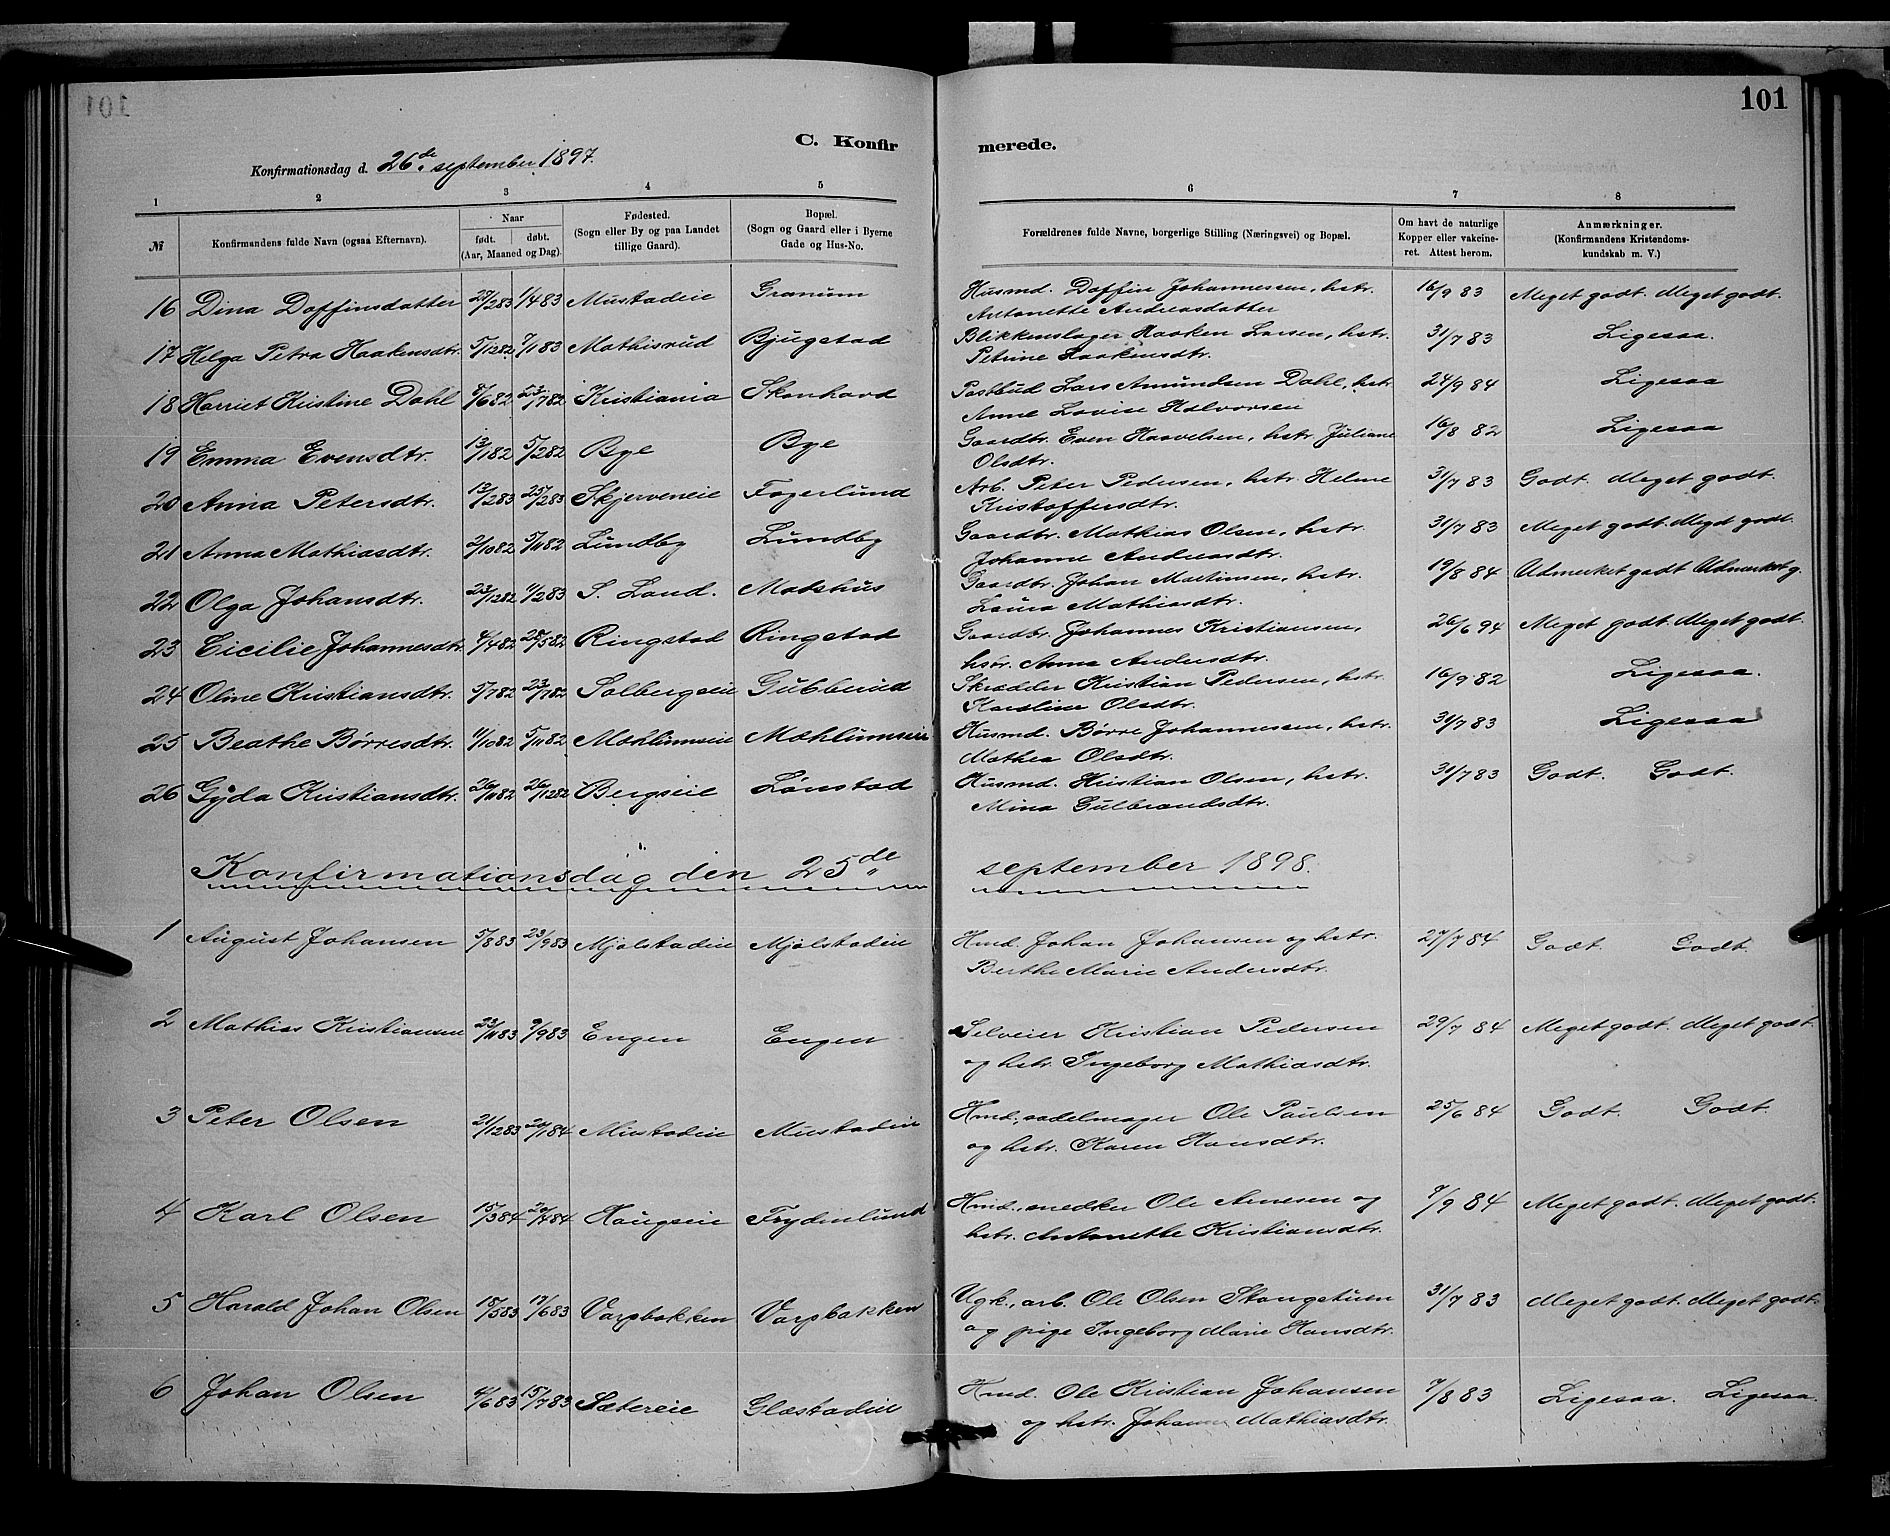 101
C. Konfir merede.
Konfirmationsdag d. 26de september 1897.
1 2 3 4 5 6 7 8
№ Konfirmandens fulde Navn (ogsaa Efternavn). Naar født. døbt. (Aar, Maaned og Dag). Fødested. (Sogn eller By og paa Landet tillige Gaard). Bopæl. (Sogn og Gaard eller i Byerne Gade og Hus-No. Forældrenes fulde Navne, borgerlige Stilling (Næringsvei) og Bopæl. Om havt de naturlige Kopper eller vakcineret. Attest herom. Anmærkninger. (Konfirmandens Kristendomskundskab m. V.)
16 Dina Doffinsdatter 27/2 83 1/4 83 Mustadeie Granum Husmd. Doffin Johannesen, hstr. 16/9 83 Meget godt. Meget godt.
Antonette Andreasdatter
17 Helga Petra Haakensdtr. 5/12 82 7/1 83 Mathisrud Bjugstad Blikkenslager Haaken Larsen, hstr. 31/7 83 Ligesaa.
Petrine Haakensdtr.
18 Harriet Kristine Dahl 8/6 82 23/7 82 Kristiania Skonhard Postbud Lars Amundsen Dahl, hstr. 24/9 84 Ligesaa
Anne Lovise Halvorsen
19 Emma Evensdtr. 13/1 82 5/2 82 Bye Bye Gaardbr. Even Haavelsen, hstr. Juliane 16/8 82 Ligesaa
Olsdtr.
20 Anna Petersdtr. 12/2 83 25/2 83 Skjerveneie Fagerlund Arb. Peter Pedersen, hstr. Helene 31/7 83 Godt. Meget godt.
Kristoffersdtr.
21 Anna Mathiasdtr. 2/10 82 5/11 82 Lundby Lundby Gaardbr. Mathias Olsen, hstr. 31/7 83 Meget godt. Meget godt.
Johanne Andreasdtr.
22 Olga Johansdtr. 23/12 82 11/2 83 S. Land. Matshus Gaardbr. Johan Martinsen, hstr. 19/8 84 Udmerket godt Udmerket g.
Laura Mathiasdtr.
23 Cicilie Johannesdtr. 4/4 82 28/5 82 Ringstad Ringstad Gaardbr. Johannes Kristiansen, 26/6 94 Meget godt. Meget godt.
hstr. Anna Andersdtr.
24 Oline Kristiansdtr. 5/7 82 23/7 82 Solbergseie Gubberud Skrædder Kristian Pedersen, hstr. 16/9 82 Ligesaa.
Karoline Olsdtr.
25 Beathe Børresdtr. 4/10 82 5/11 82 Mohlumseie Mohlumseie Husmd. Børre Johannessen, hstr. 31/7 83 Ligesaa
Mathea Olsdtr.
26 Gyda Kristiansdtr. 26/11 82 26/12 82 Bergseie Lønstad Husmd. Kristian Olsen, hstr. 31/7 83 Godt. Godt.
Mina Gulbrandsdtr.
Konfirmationsdag den 25de september 1898.
1 August Johansen 5/8 83 23/9 83 Mjølstadeie Mjølstadeie Hmd. Johan Johansen og hstr. 27/7 84 Godt. Godt.
Berthe Marie Andersdtr.
2 Mathias Kristiansen 9/9 83 Engen Engen Selveier Kristian Pedersen 29/7 84 Meget godt. Meget godt.
og hstr. Ingeborg Mathiasdtr.
3 Peter Olsen 21/12 83 20/1 84 Mustadeie Mustadeie Hmd., sadelmager Ole Paulsen 25/6 84 Godt. Godt.
og hstr. Karen Hansdtr.
4 Karl Olsen 15/3 84 20/4 84 Haugseie Frydenlund Hmd., snedker Ole Arnesen og 9/9 84 Meget godt. Meget godt.
hstr. Antonette Kristiansdtr.
5 Harald Johan Olsen 15/5 83 17/6 83 Varpbakken Varpbakken Ugk., arb. Ole Olsen Stangstuen 31/7 83 Meget godt. Meget godt.
og pige Ingeborg Marie Hansdtr.
6 Johan Olsen 4/6 83 15/7 83 Sætereie Glæstadeie Hmd. Ole Kristian Johansen 7/8 83 Ligesaa. Ligesaa.
og hstr. Johanne Mathiasdtr.